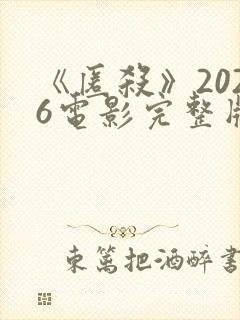 《匿殺》202
6電影完整版
東篱把酒醉書